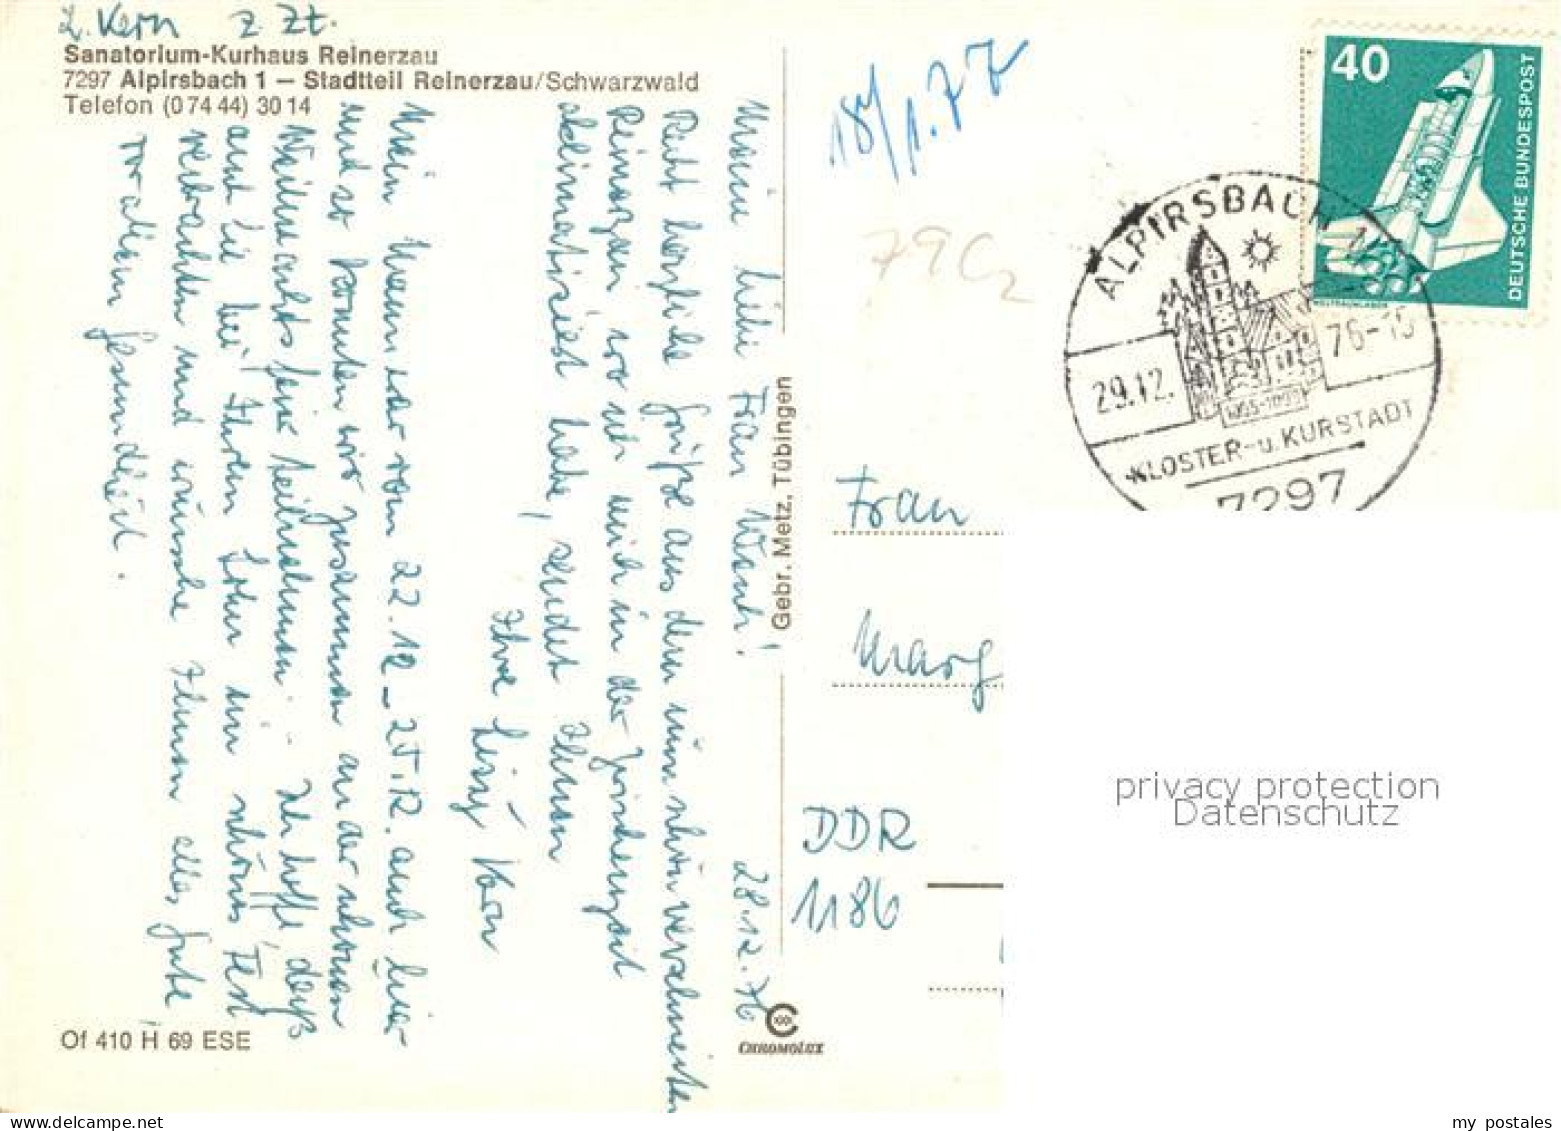 L. Kern z. Zt.
Sanatorium-Kurhaus Reinerzau
7297 Alpirsbach 1 — Stadtteil Reinerzau/Schwarzwald
Telefon (0 74 44) 30 14
28.12.76
Meine liebe Frau Wand!
Recht herzliche Grüße aus dem nun schon verschneiten
Reinerzau, wo ich mich in der Zwischenzeit
aklimatisiert habe, sendet Ihnen
Ihre Lissy Kern
Mein Mann war vom 22.12 – 25.12. auch hier
und so konnten wir zusammen an der schönen
Weihnachtsfeier teilnehmen. Ich hoffe, daß
auch Sie bei Ihrem Sohn ein schönes Fest
verbrachten und wünsche Ihnen alles Gute,
vor allem Gesundheit.
Of 410 H 69 ESE
Gebr. Metz, Tübingen
CHROMOLUX
18/1.77
79C2
40
DEUTSCHE BUNDESPOST
ALPIRSBACH 1
29.12.76-15
KLOSTER-u. KURSTADT
7297
Frau
Marg
DDR
1186
privacy protection
Datenschutz
delcampe.net
my_postales